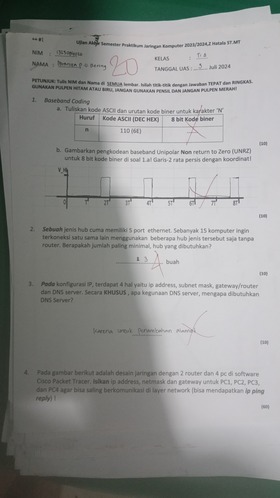 Ujian Akhir Semester Praktikum Jaringan Komputer 2023/2024,2 Hatala ST.MT
NIM :
KELAS :
NAMA :
TANGGAL UAS : 3 Juli 2024
20
PETUNJUK: Tulis NIM dan Nama di SEMUA lembar. Isilah titik-titik dengan Jawaban TEPAT dan RINGKAS.
GUNAKAN PULPEN HITAM ATAU BIRU, JANGAN GUNAKAN PENSIL DAN JANGAN PULPEN MERAH!
1. Baseband Coding
a. Tuliskan kode ASCII dan urutan kode biner untuk karakter 'N'
Huruf Kode ASCII (DEC HEX) 8 bit Kode biner
n 110 (6E)
[10]
b. Gambarkan pengkodean baseband Unipolar Non return to Zero (UNRZ)
untuk 8 bit kode biner di soal 1.a! Garis-2 rata persis dengan koordinat!
[10]
2. Sebuah jenis hub cuma memiliki 5 port ethernet. Sebanyak 15 komputer ingin
terkoneksi satu sama lain menggunakan beberapa hub jenis tersebut saja tanpa
router. Berapakah jumlah paling minimal, hub yang dibutuhkan?
buah
[10]
3. Pada konfigurasi IP, terdapat 4 hal yaitu ip address, subnet mask, gateway/router
dan DNS server. Secara KHUSUS, apa kegunaan DNS server, mengapa dibutuhkan
DNS Server?
karena untuk
[10]
4. Pada gambar berikut adalah desain jaringan dengan 2 router dan 4 pc di software
Cisco Packet Tracer. Isikan ip address, netmask dan gateway untuk PC1, PC2, PC3,
dan PC4 agar bisa saling berkomunikasi di layer network (bisa mendapatkan ip ping
reply) !
[60]